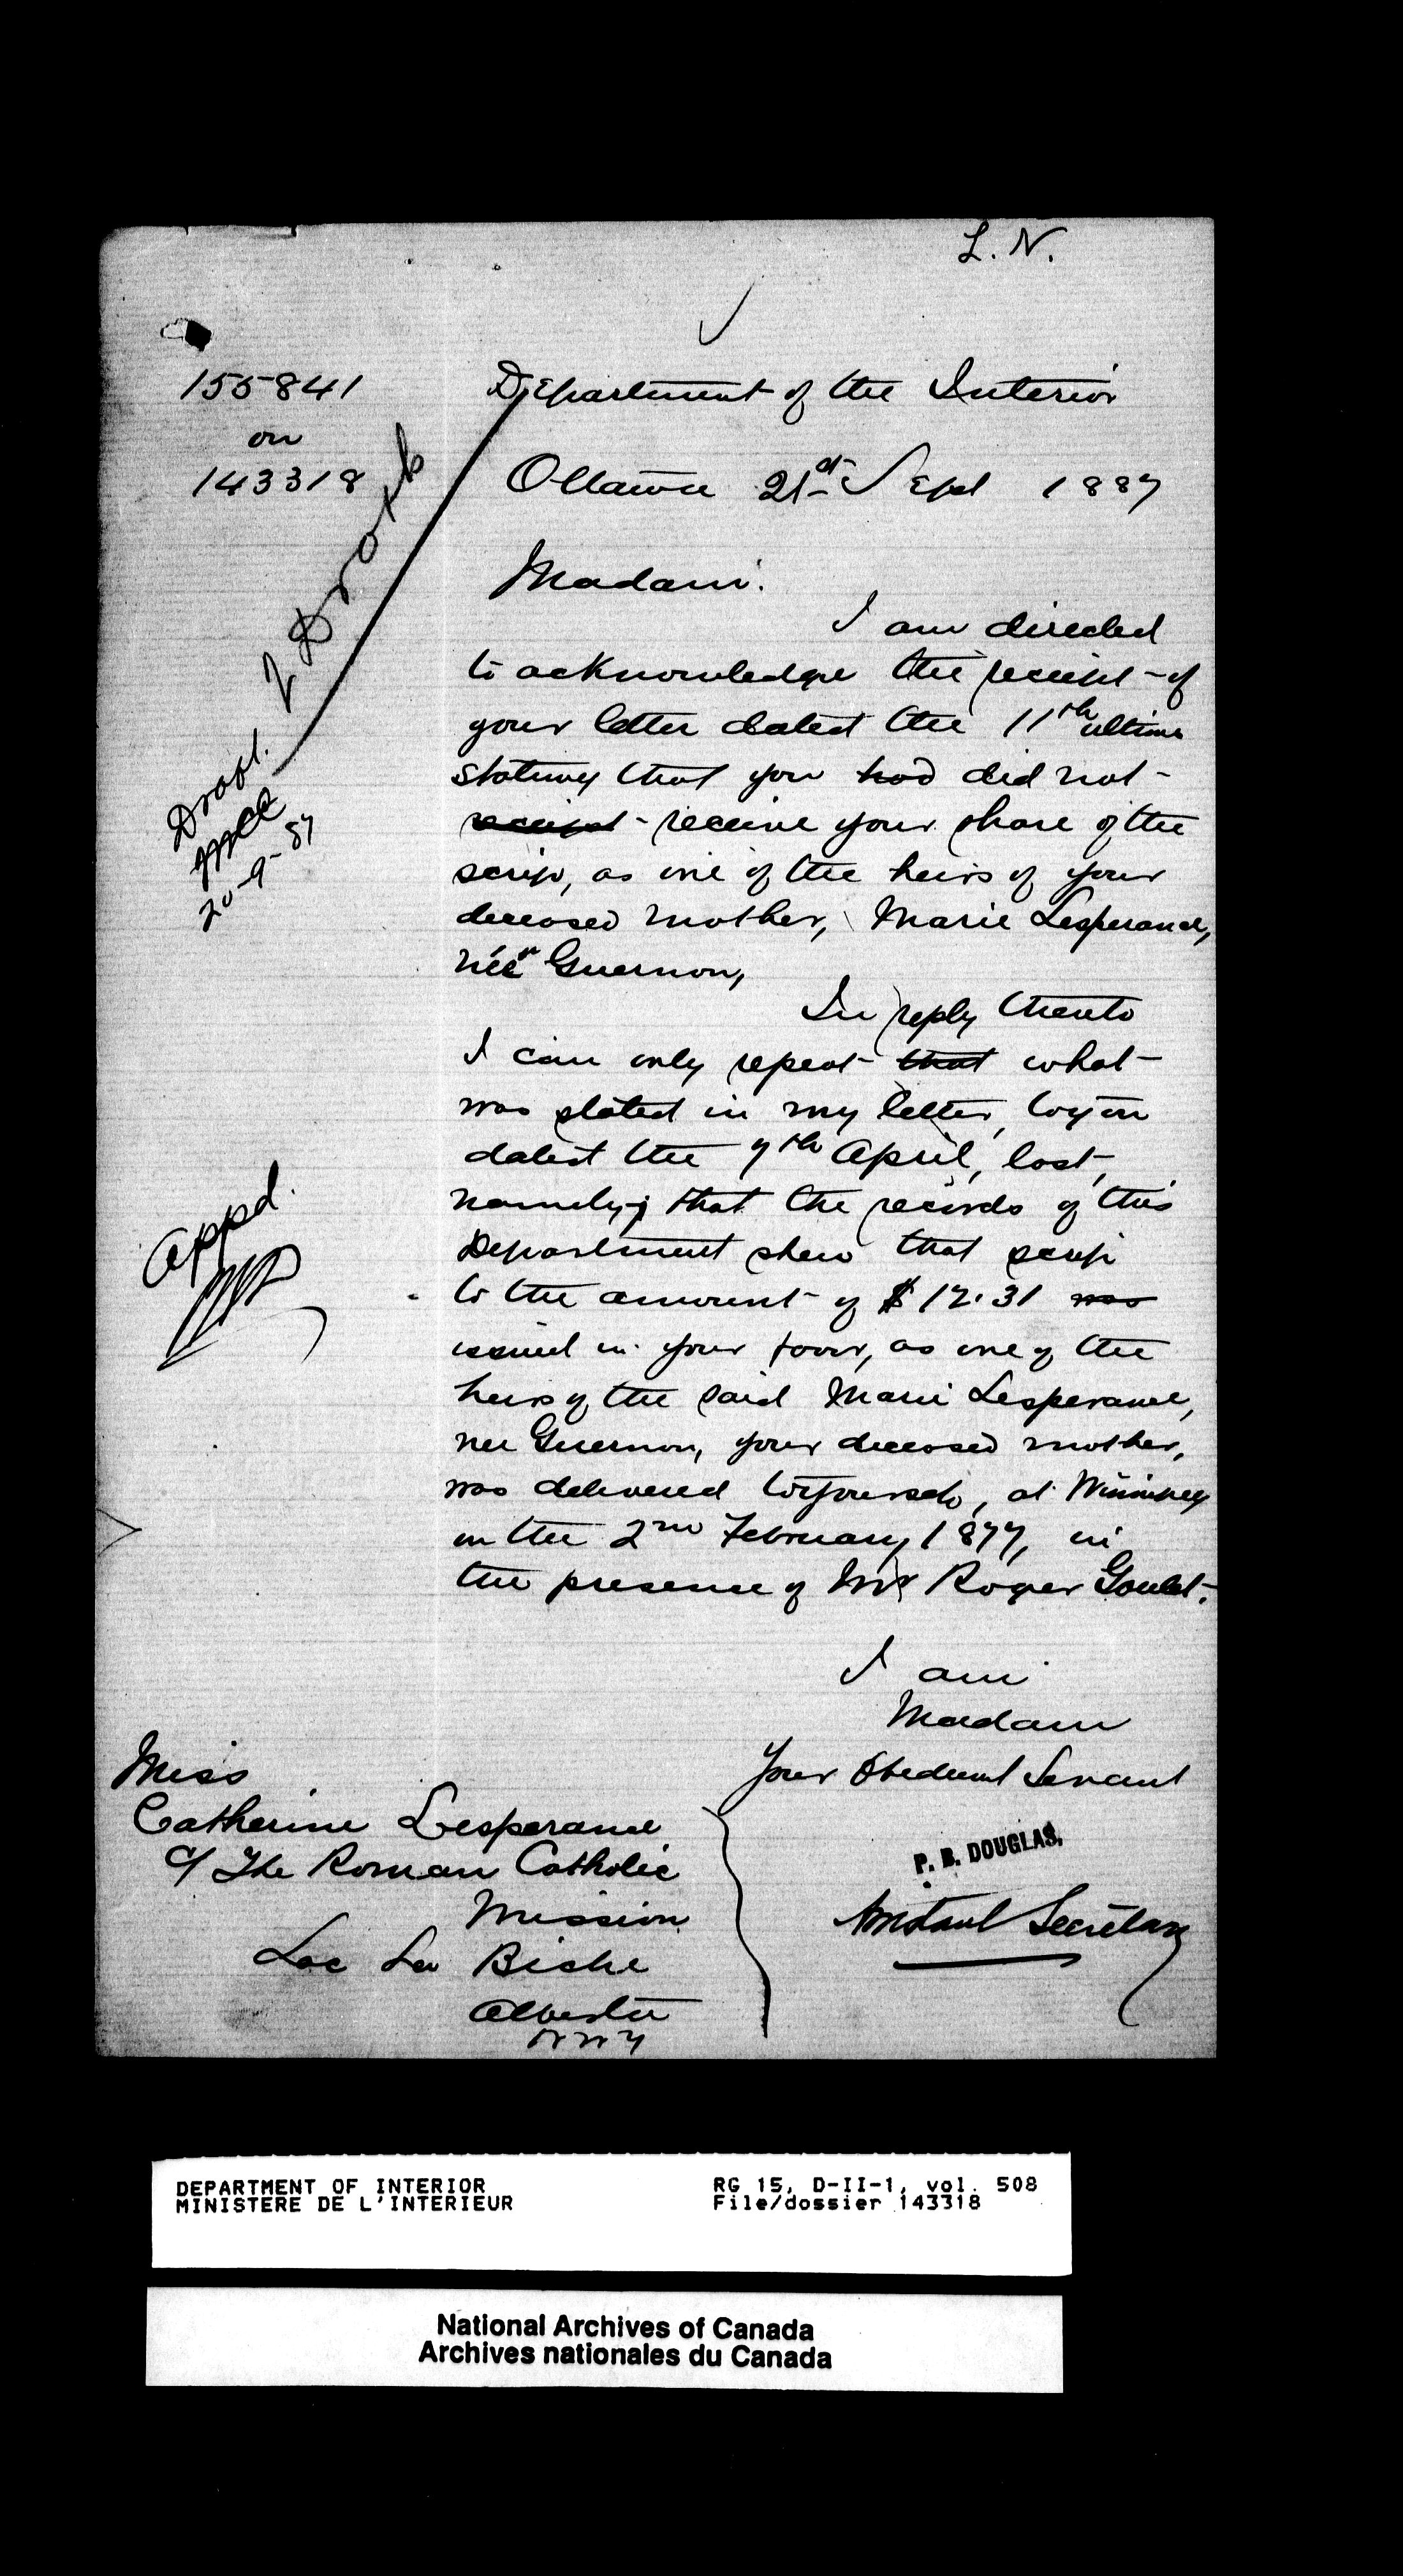 L. N.
155841
on
143318
Department of the Interior
Ottawa 21st Sept 1887
Draft.
20-9-87
Madam.
I am directed
to acknowledge the receipt of
your letter dated the 11th ultimo
stating that you had did not
receipt receive your share of the
scrip, as one of the heirs of your
deceased mother, Marie Lesperance,
née Guernon,
In reply thereto
I can only repeat that what
was stated in my letter, to you
dated the 7th April, last,
namely; that the records of this
Department shew that scrip
to the amount of $12.31 was
issued in your favor, as one of the
heirs of the said Marie Lesperance,
nee Guernon, your deceased mother,
was delivered to yourself, at Winnipeg
on the 2nd February 1877, in
the presence of Mr Roger Goulet.
Appd.
I am
Madam
Your Obedient Servant
P. B. DOUGLAS,
Assistant Secretary
Miss
Catherine Lesperance
c/ The Roman Catholic
Mission
Lac La Biche
Alberta
NWT
DEPARTMENT OF INTERIOR
MINISTERE DE L'INTERIEUR
RG 15, D-II-1, vol. 508
File/dossier 143318
National Archives of Canada
Archives nationales du Canada